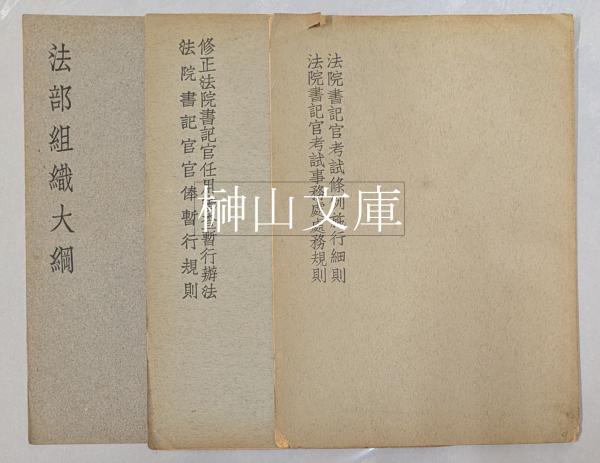 法院書記官考試條例施行細則
法院書記官考試事務處處務規則
修正法院書記官任用
暫行辦法
法院書記官官俸暫行規則
法部組織大綱
榊山文庫